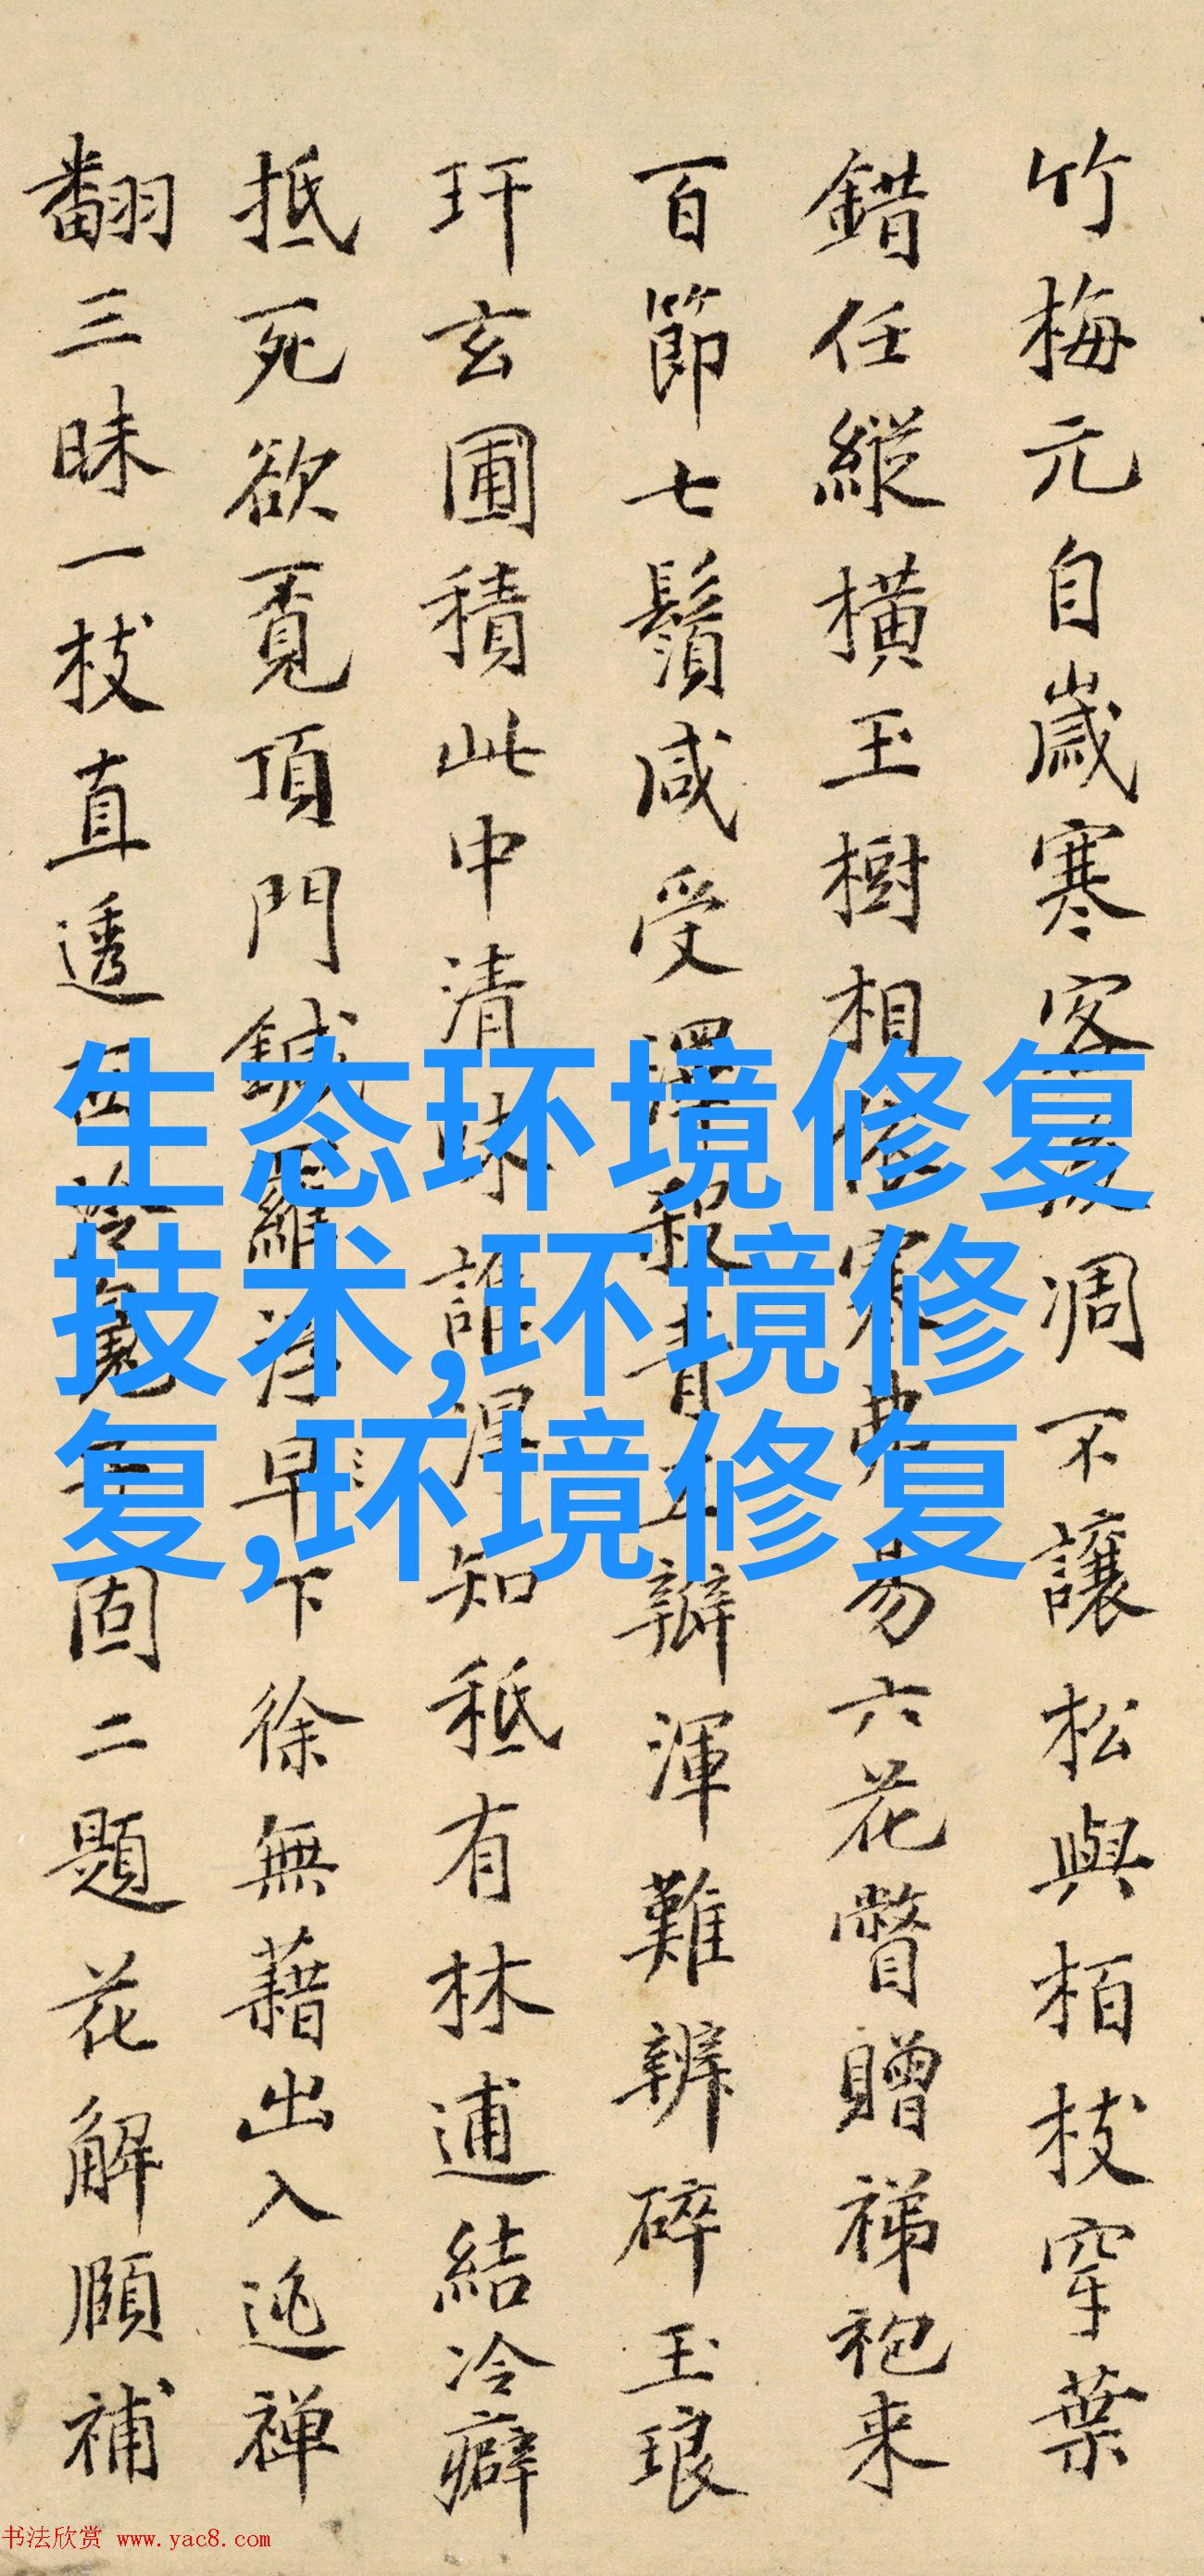 竹梅元自歲寒客
凋不讓松與栢枝穿葉
錯任縱橫玉樹相
寒
易六花瞥贈祶袍来
百節七鬚咸受澤
五辦渾難辨碎玉琅
玕玄圃積此中清味誰
知秪有林逋結冷癖
抵死欲覔頂門鍼羅浮
早下徐無藉出入逃禅
翻三昧一枝直透
固二題花解頤補
生态环境修复
技术,环境修
复,环境修复
书法欣赏 www.yac8.com